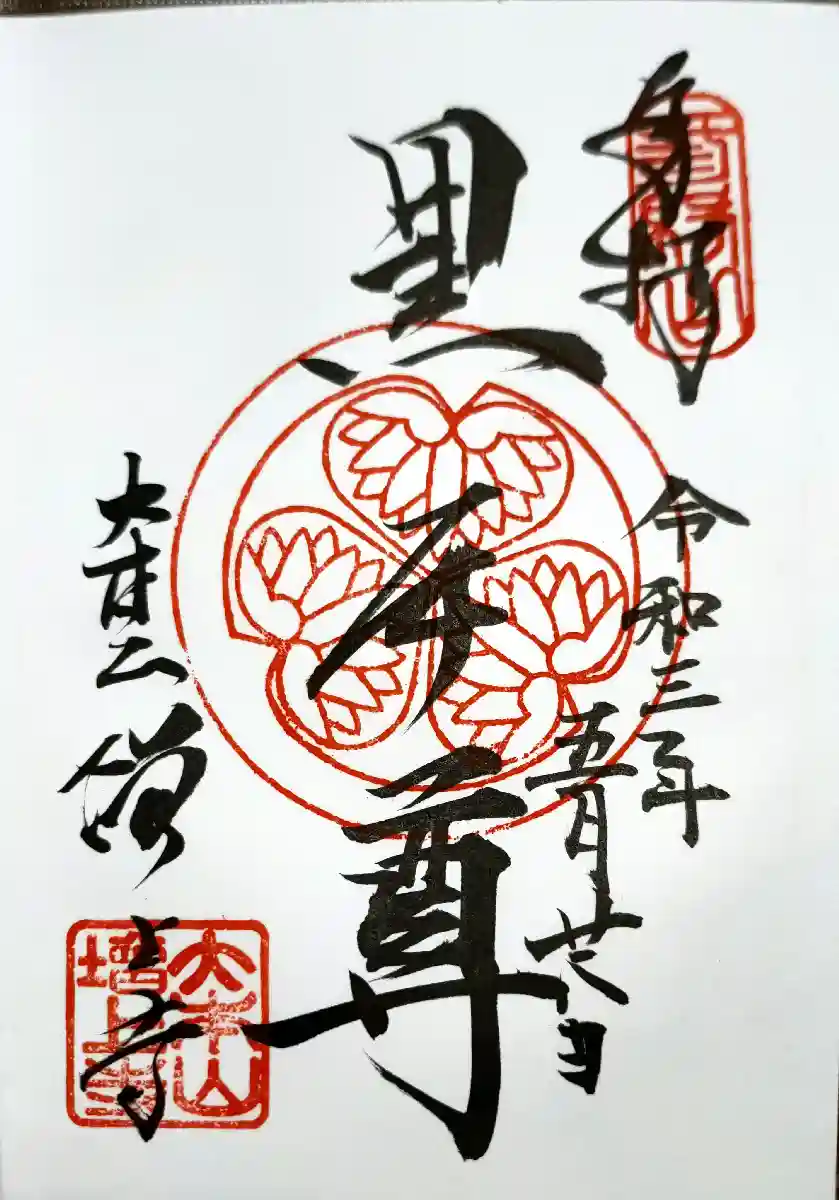 奉拝
令和三年
五月廿日
黒本尊
大本山
増上寺
大本山
増上寺